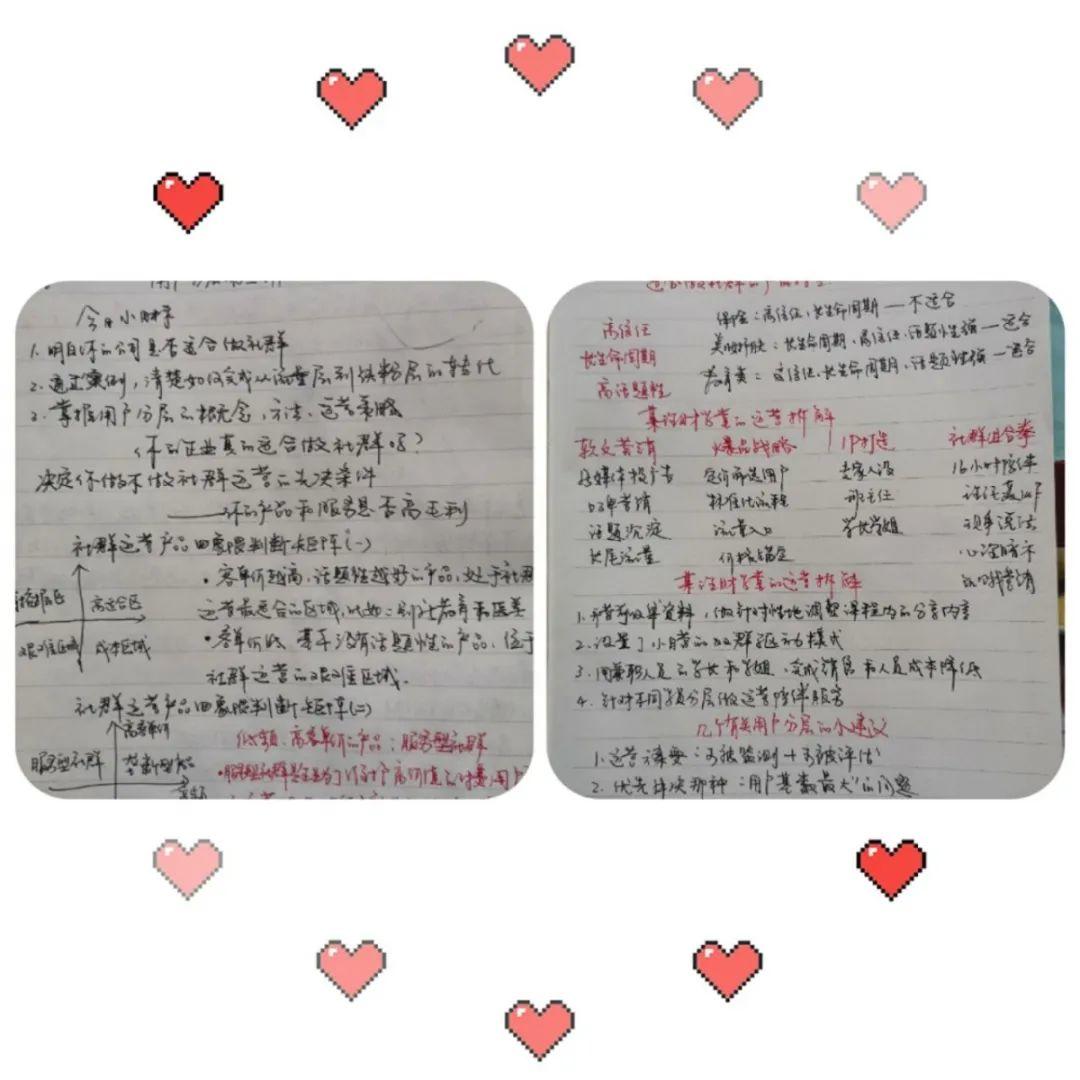 今日小财季
1. 明白你的公司是否适合做社群
2. 通过案例，清楚如何完成从流量层到铁粉层的转化
3. 掌握用户分层的概念，方法、运营策略
你的企业真的适合做社群吗？
决定你做不做社群运营的先决条件
——你的产品和服务是否高毛利
社群运营产品四象限判断矩阵（一）
高适合区
艰难区域
成本区域
• 客单价越高，话题性越好的产品，处于社群
运营最适合的区域，比如：别社教育和医美
• 客单价低、基本没有话题性的产品，位于
社群运营的艰难区域。
社群运营产品四象限判断矩阵（二）
高客单价
服务型社群
低频、高客单价的产品：服务型社群
高信任
长生命周期
高话题性
保险：高信任、长生命周期——不适合
美妆护肤：长生命周期、高信任、话题性强——适合
教育类：高信任、长生命周期、话题性强——适合
某理财学堂的运营拆解
软文营销 爆品战略 IP打造 社群组合拳
自媒体投广告 定价筛选用户 专家人设 16小时陪伴
口碑营销 标准化流程 班主任
话题沉淀 流量入口 学长学姐 现身说法
长尾流量 价格锚定 心理暗示
自我营销
某理财学堂的运营拆解
1. 开营前收集资料，做针对性地调整课程内的分享内容
2. 设置了小自营的双群驱动模式
3. 用兼职人员的学长和学姐，完成销售和人员成本降低
4. 针对不同学员分层做运营陪伴服务
几个有关用户分层的小建议
1. 运营课要：可被监测+可被评估
2. 优先解决那种“用户基数最大”的问题